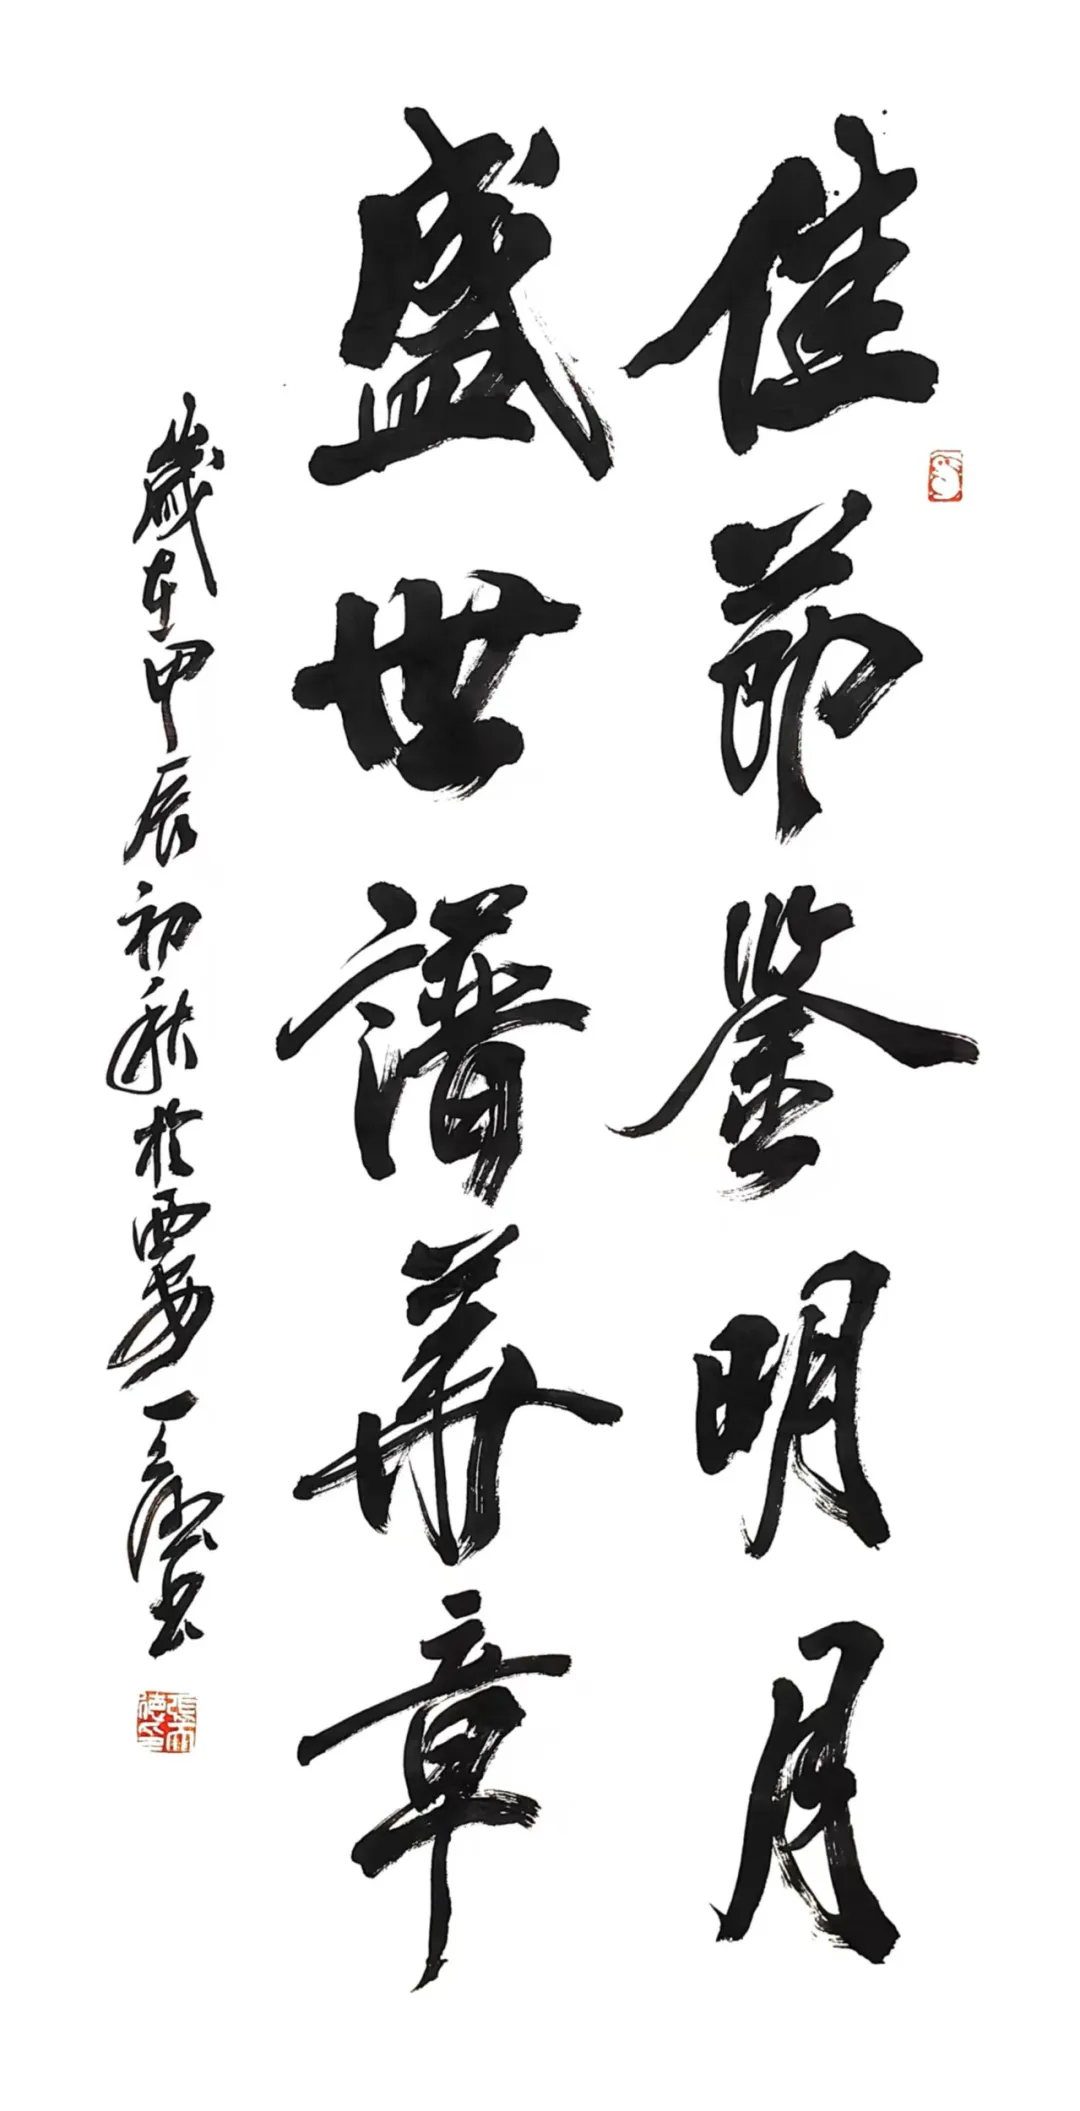 佳節鉴明月
盛世譜華章
歲在甲辰初秋於西安一